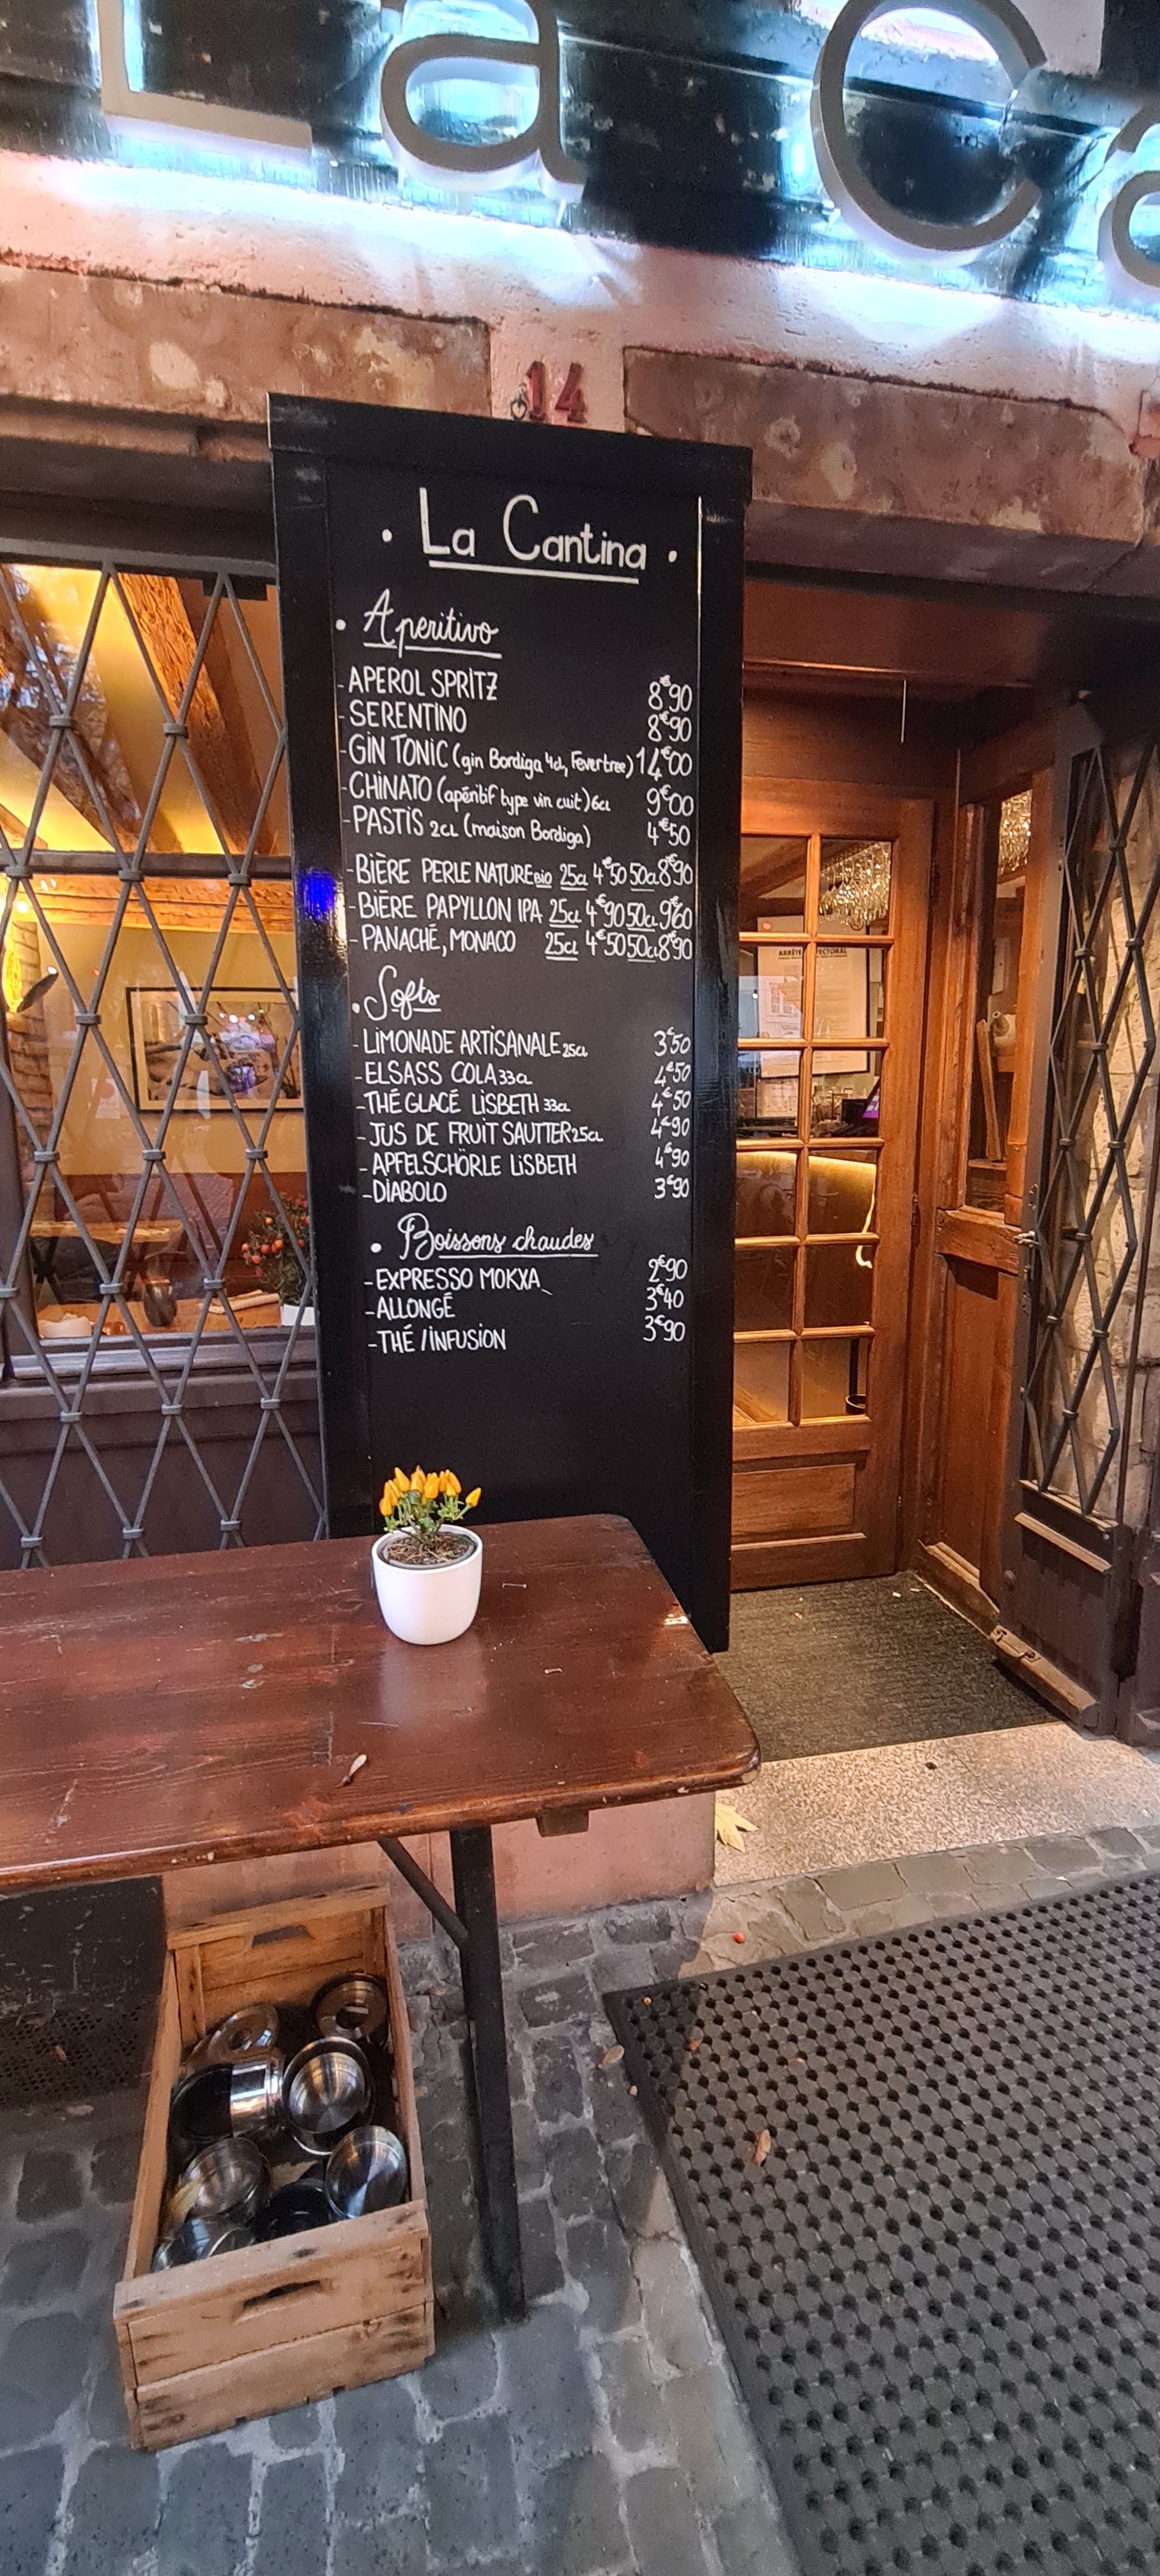 La Ca
14
· La Cantina ·
· Aperitivo
- APEROL SPRITZ 8€90
- SERENTINO 8€90
- GIN TONIC (gin Bordiga 4cl, Fevertree) 14€00
- CHINATO (apéritif type vin cuit) 6cl 9€00
- PASTIS 2CL (maison Bordiga) 4€50
- BIÈRE PERLE NATURE BIO 25cl 4€50 50cl 8€90
- BIÈRE PAPYLLON IPA 25cl 4€90 50cl 9€60
- PANACHÉ, MONACO 25cl 4€50 50cl 8€90
· Softs
- LIMONADE ARTISANALE 25CL 3€50
- ELSASS COLA 33CL 4€50
- THÉ GLACÉ LISBETH 33CL 4€50
- JUS DE FRUIT SAUTTER 25CL 4€90
- APFELSCHÖRLE LISBETH 4€90
- DIABOLO 3€90
· Boissons chaudes
- EXPRESSO MOKXA 2€90
- ALLONGÉ 3€40
- THÉ / INFUSION 3€90